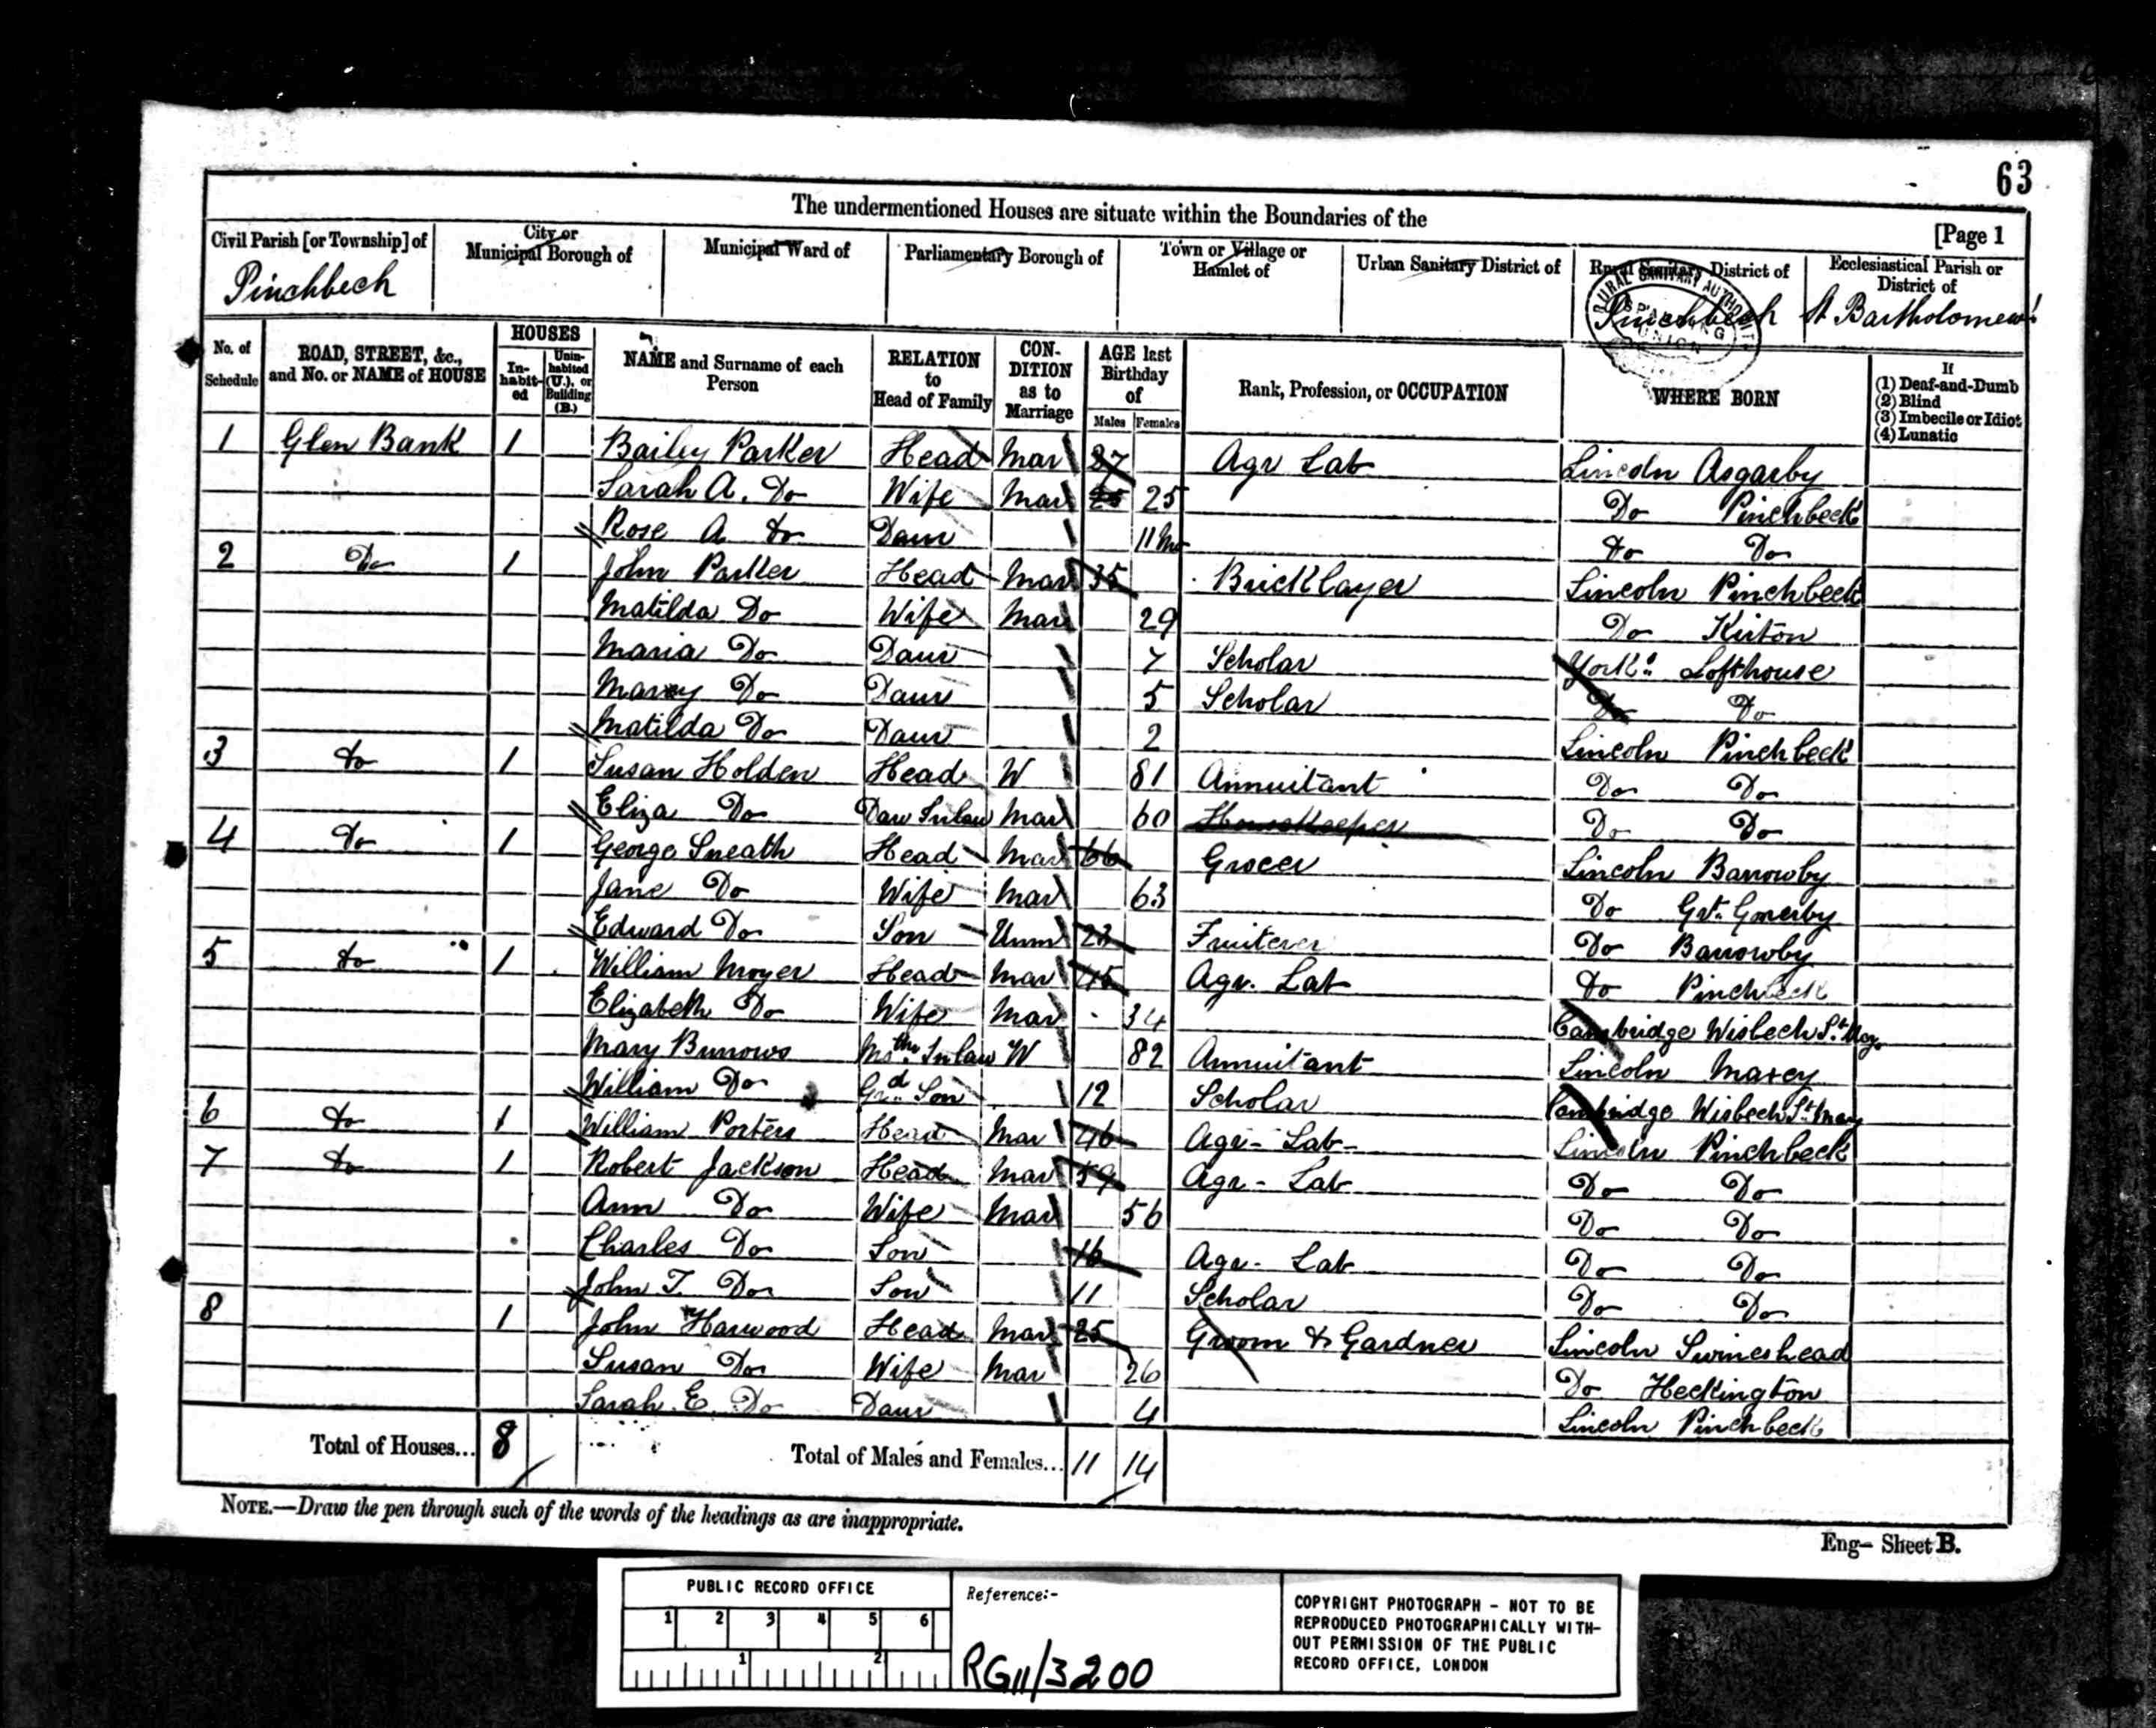 63
The undermentioned Houses are situate within the Boundaries of the
[Page 1
Civil Parish [or Township] of
City or Municipal Borough of
Municipal Ward of
Parliamentary Borough of
Town or Village or Hamlet of
Urban Sanitary District of
Rural Sanitary District of
Ecclesiastical Parish or District of
Pinchbech
Pinchbech
St Bartholomews
RURAL SANITARY AUTHORITY SPALDING UNION
No. of Schedule
ROAD, STREET, &c., and No. or NAME of HOUSE
HOUSES
In-habit-ed
Unin-habited (U.), or Building (B.)
NAME and Surname of each Person
RELATION to Head of Family
CON-DITION as to Marriage
AGE last Birthday of
Males
Females
Rank, Profession, or OCCUPATION
WHERE BORN
If
(1) Deaf-and-Dumb
(2) Blind
(3) Imbecile or Idiot
(4) Lunatic
1 Glen Bank 1 Bailey Parker Head Mar 27 Agr Lab Lincoln Asgarby
Sarah A. Do Wife Mar 25 25 Do Pinchbeck
Rose A Do Daur 11 Mo Do Do
2 Do 1 John Parker Head Mar 35 Bricklayer Lincoln Pinchbeck
Matilda Do Wife Mar 29 Do Kirton
Maria Do Daur 7 Scholar Yorks Lofthouse
Mary Do Daur 5 Scholar Do Do
Matilda Do Daur 2 Lincoln Pinchbeck
3 Do 1 Susan Holden Head W 81 Annuitant Do Do
Eliza Do Dau Inlaw Mar 60 Housekeeper Do Do
4 Do 1 George Sneath Head Mar 66 Grocer Lincoln Barrowby
Jane Do Wife Mar 63 Do Gt. Gonerby
Edward Do Son Unm 23 Fruiterer Do Barrowby
5 Do 1 William Moyer Head Mar 45 Agr. Lab Do Pinchbeck
Elizabeth Do Wife Mar 34 Cambridge Wisbech St. May
Mary Burrows Mother Inlaw W 82 Annuitant Lincoln Maxey
William Do Grd Son 12 Scholar Cambridge Wisbech St Mary
6 Do 1 William Porters Head Mar 46 Agr- Lab- Lincoln Pinchbeck
7 Do 1 Robert Jackson Head Mar 59 Agr- Lab Do Do
Ann Do Wife Mar 56 Do Do
Charles Do Son 16 Agr- Lab Do Do
John T. Do Son 11 Scholar Do Do
8 1 John Harwood Head Mar 25 Groom & Gardner Lincoln Swineshead
Susan Do Wife Mar 26 Do Heckington
Sarah E. Do Daur 4 Lincoln Pinchbeck
Total of Houses... 8
Total of Males and Females... 11 14
NOTE.—Draw the pen through such of the words of the headings as are inappropriate.
Eng- Sheet B.
PUBLIC RECORD OFFICE
1 2 3 4 5 6
1 2
Reference:-
RG11/3200
COPYRIGHT PHOTOGRAPH - NOT TO BE
REPRODUCED PHOTOGRAPHICALLY WITH-
OUT PERMISSION OF THE PUBLIC
RECORD OFFICE, LONDON